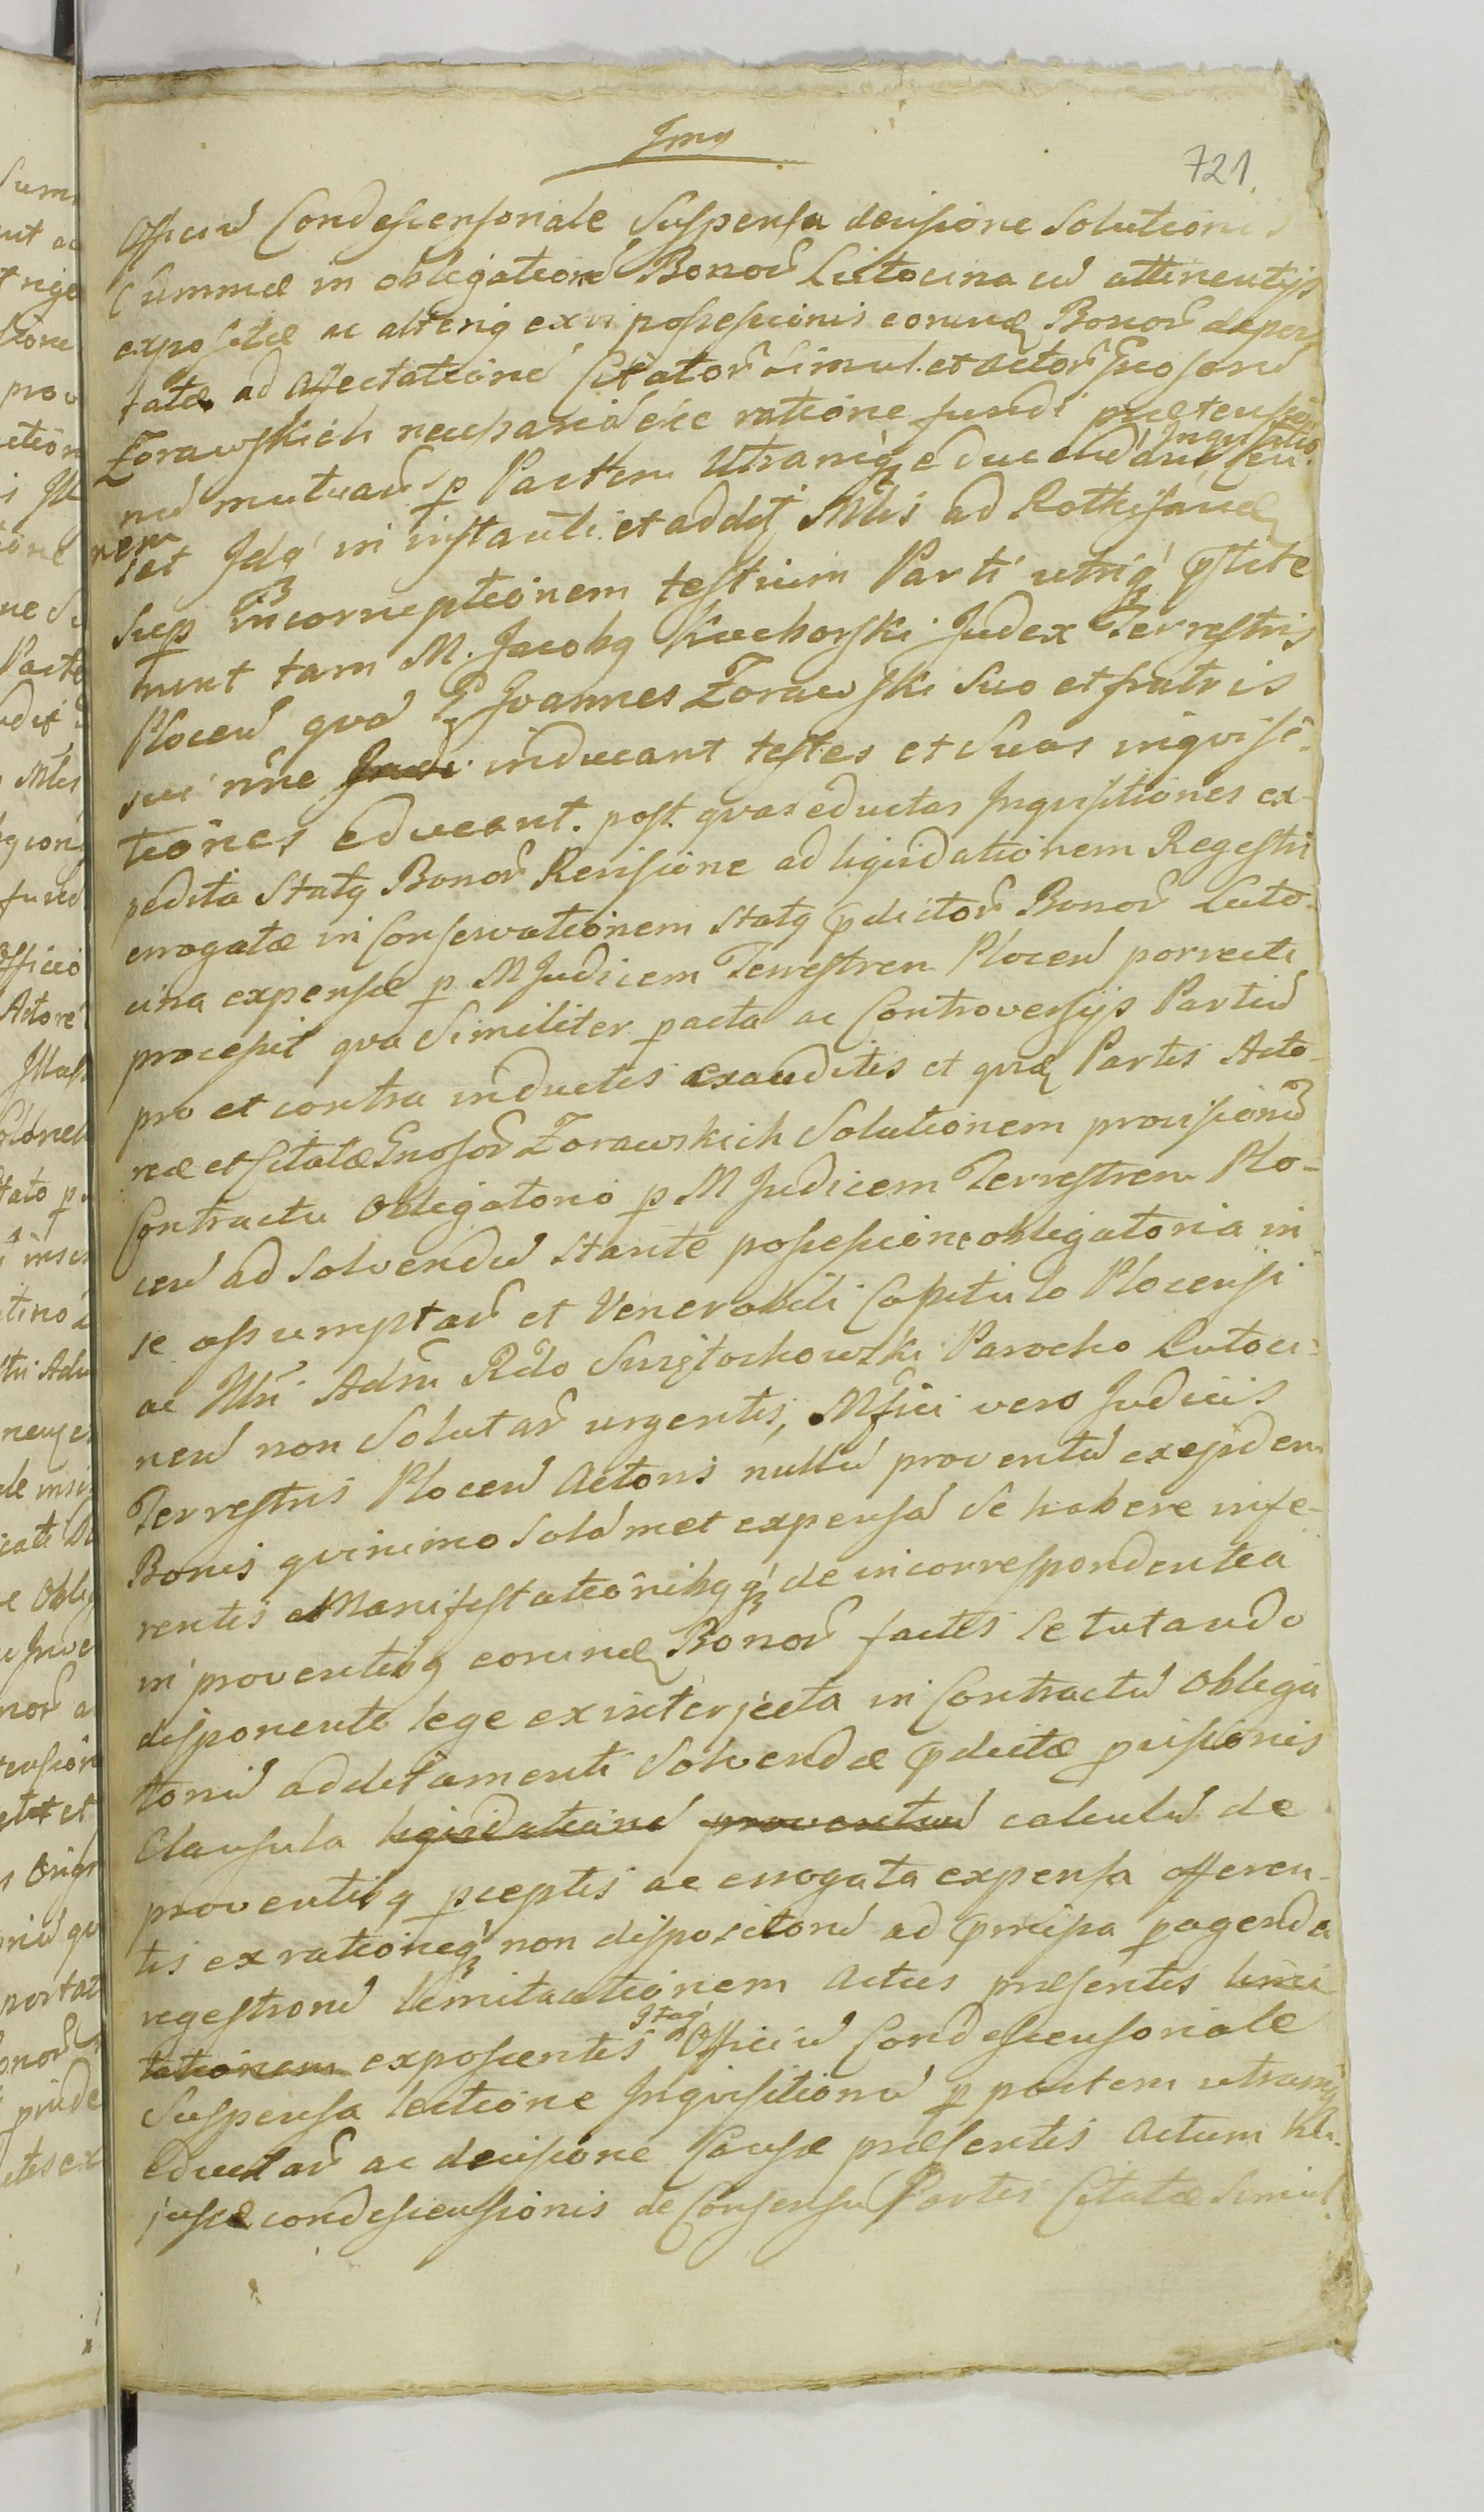 721.
Officiu Condescensoriale Suspensa decisione Solutionis
Summæ in obligatione Bonor Lutocina cu attinentijs
expositæ ac alterig ex vi possessionis eorund Bonor depor
tatæ ad affectatione Citator simul et actor Gnosoru
Zorawskich ratione fundi prætensio
nu mutuar p Partem Utramq educendam Inquisitio
nem
set Idq in instanti et addit Mtis ad Rotthisand
sup incorruptionem testium Parti utriq pstite
runt tam M. Jacobg Kucharski Judex Terrestris
Plocen qva G Joannes Zorawski Suo et fratris
sui nne inducant testes et Suas inqvisi-
tiones educant. post qvas eductas Inqvisitiones ex-
pedita Statg Bonor Revisione ad liqvidationem Regestri
errogatæ in Conservationem Statg pdictor Bonor Luto-
cina expensæ p M Judicem Terrestrem Plocen porrecti
processit qva Similiter pacta ac Controversijs Partiu
pro et contra inductis exauditis et qvid Partis Acto-
reæ et Citatæ Gnosor Zorawskich Solutionem provisionu
Contractu Obligatorio p M Judicem Terrestrem Plo-
cen ad Solvendu stante possessione obligatoria in
se assumptar et Venerabili Capitulo Plocensi
ac Adm Rdo Swiętochowski Parocho Lutoci-
nen non Solutar urgentis, Mfici vero Judicis
Terrestris Plocen Actoris nullu proventu ex ejsdem
Bonis qvinimo Solamet expensa Se habere infe-
rentis Manifestationibg q de incorrespondentia
in proventibg eorund Bonor factis Se tutando
disponente lege ex interjecta in Contractu Obliga
toriu additamenti Solvendæ pdictæ pvisionis
Clausula liqvidatione proventuu calculu de
proventibg pceptis ac errogata expensa offeren-
tis ex rationeq non dispositoru ad pmissa pagenda
regestroru limitationem Actus præsentis limi
tationem exposcentis Itaq Officiu Condescensoriale
Suspensa lectione Inqvisitionu p partem utramq
eductar ac decisione Causæ præsentis Actum hu-
jusce condescensionis de Consensu Partis Citatæ Simul